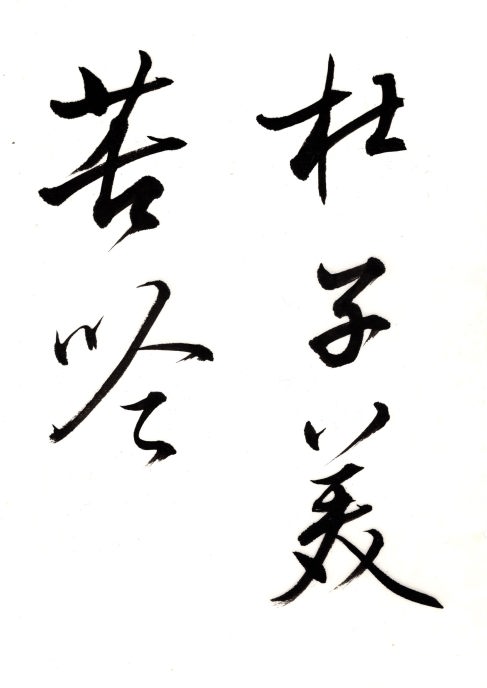 杜子美
苦吟